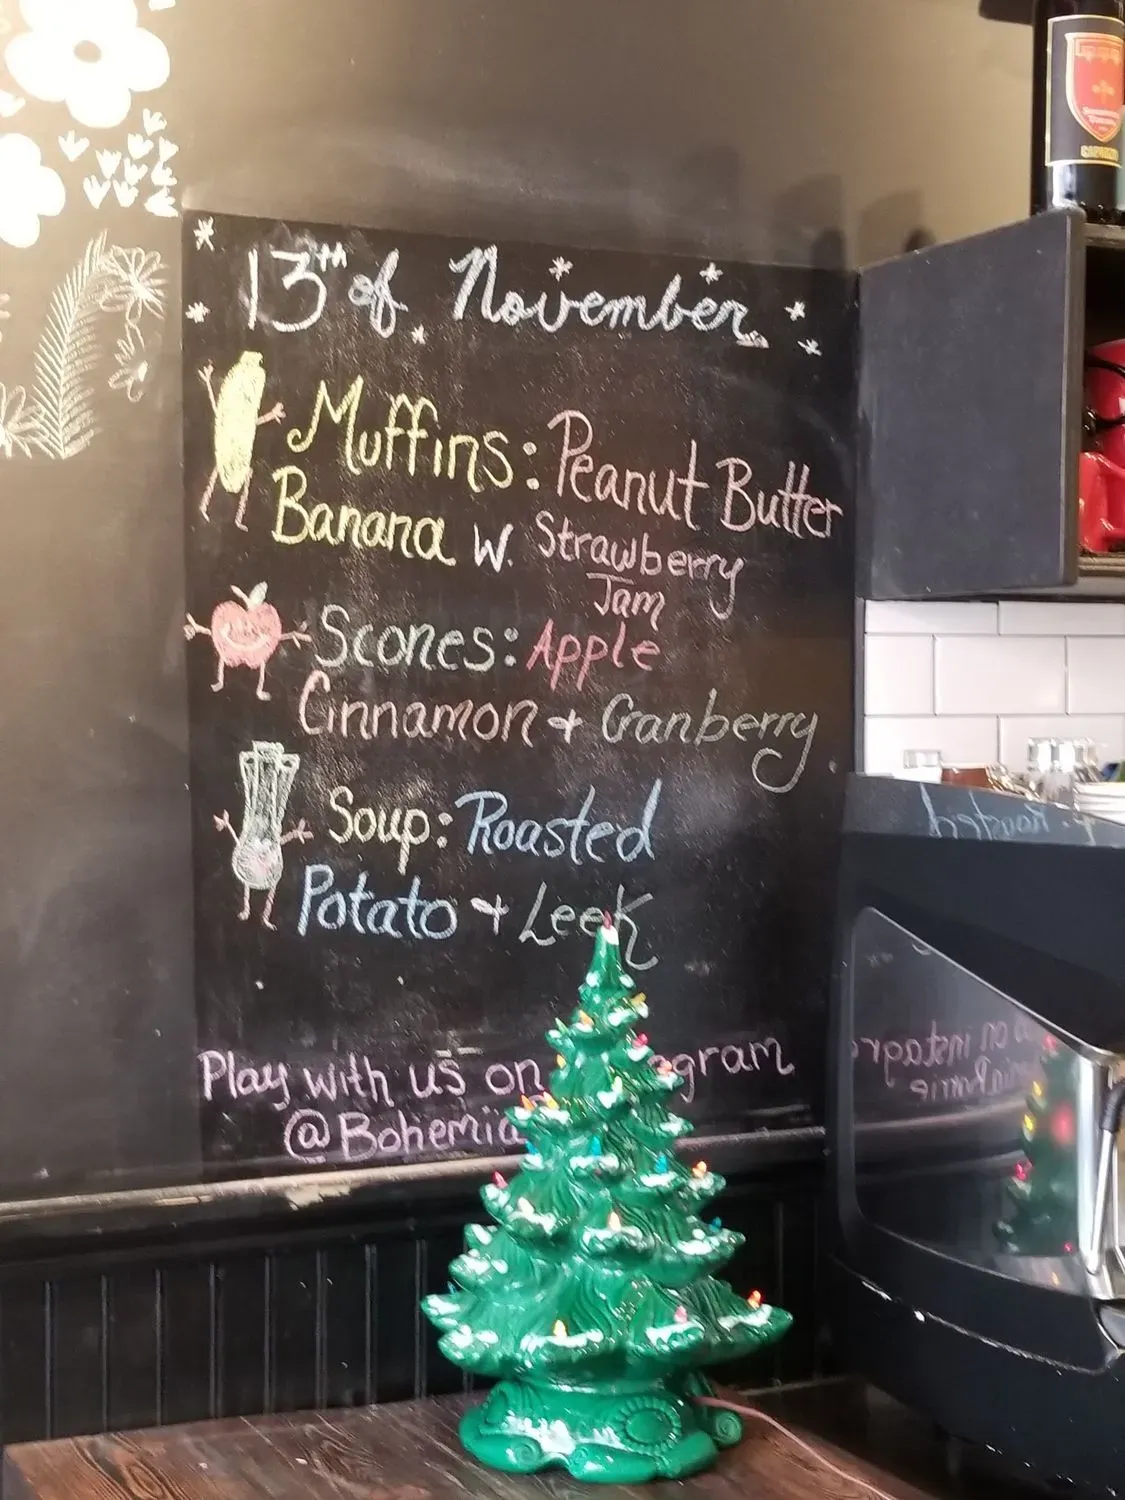 13th of November
Muffins: Peanut Butter
Banana W. Strawberry
Jam
Scones: Apple
Cinnamon + Cranberry
Soup: Roasted
Potato + Leek
Play with us on gram
@Bohemia